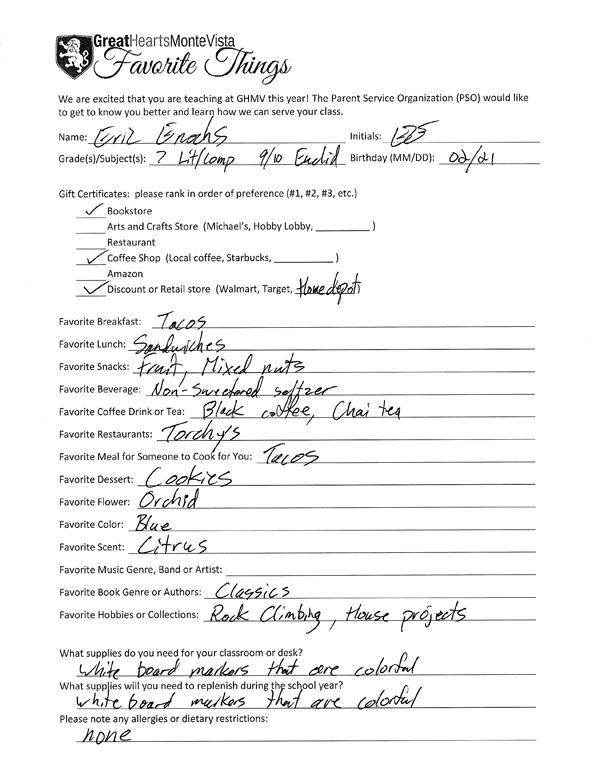 GreatHeartsMonteVista
Favorite Things
We are excited that you are teaching at GHMV this year! The Parent Service Organization (PSO) would like
to get to know you better and learn how we can serve your class.
Name: Initials:
Grade(s)/Subject(s): 7 Lit/Comp 9/10 Euclid Birthday (MM/DD): 02/21
Gift Certificates: please rank in order of preference (#1, #2, #3, etc.)
✓ Bookstore
Arts and Crafts Store (Michael's, Hobby Lobby, __________ )
Restaurant
✓ Coffee Shop (Local coffee, Starbucks, __________ )
Amazon
✓ Discount or Retail store (Walmart, Target, Home depot)
Favorite Breakfast: Tacos
Favorite Lunch: Sandwiches
Favorite Snacks: Fruit, Mixed nuts
Favorite Beverage: Non-Sweetened seltzer
Favorite Coffee Drink or Tea: Black coffee, Chai tea
Favorite Restaurants: Torchy's
Favorite Meal for Someone to Cook for You: Tacos
Favorite Dessert: Cookies
Favorite Flower: Orchid
Favorite Color: Blue
Favorite Scent: Citrus
Favorite Music Genre, Band or Artist:
Favorite Book Genre or Authors: Classics
Favorite Hobbies or Collections: Rock Climbing, House projects
What supplies do you need for your classroom or desk?
White board markers that are colorful
What supplies will you need to replenish during the school year?
White board markers that are colorful
Please note any allergies or dietary restrictions:
none